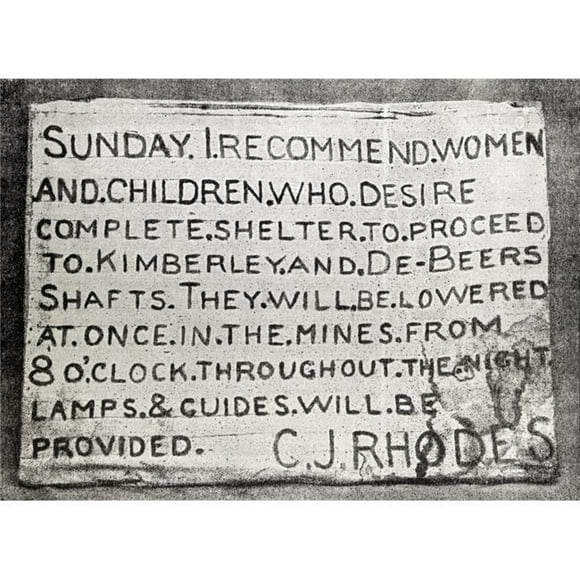 SUNDAY. I. RECOMMEND. WOMEN
AND. CHILDREN. WHO. DESIRE
COMPLETE. SHELTER. TO. PROCEED
TO. KIMBERLEY. AND. DE-BEERS
SHAFTS. THEY. WILL. BE. LOWERED
AT. ONCE. IN. THE. MINES. FROM
8 O'CLOCK. THROUGHOUT. THE. NIGHT.
LAMPS. & GUIDES. WILL. BE
PROVIDED. C. J. RHODES